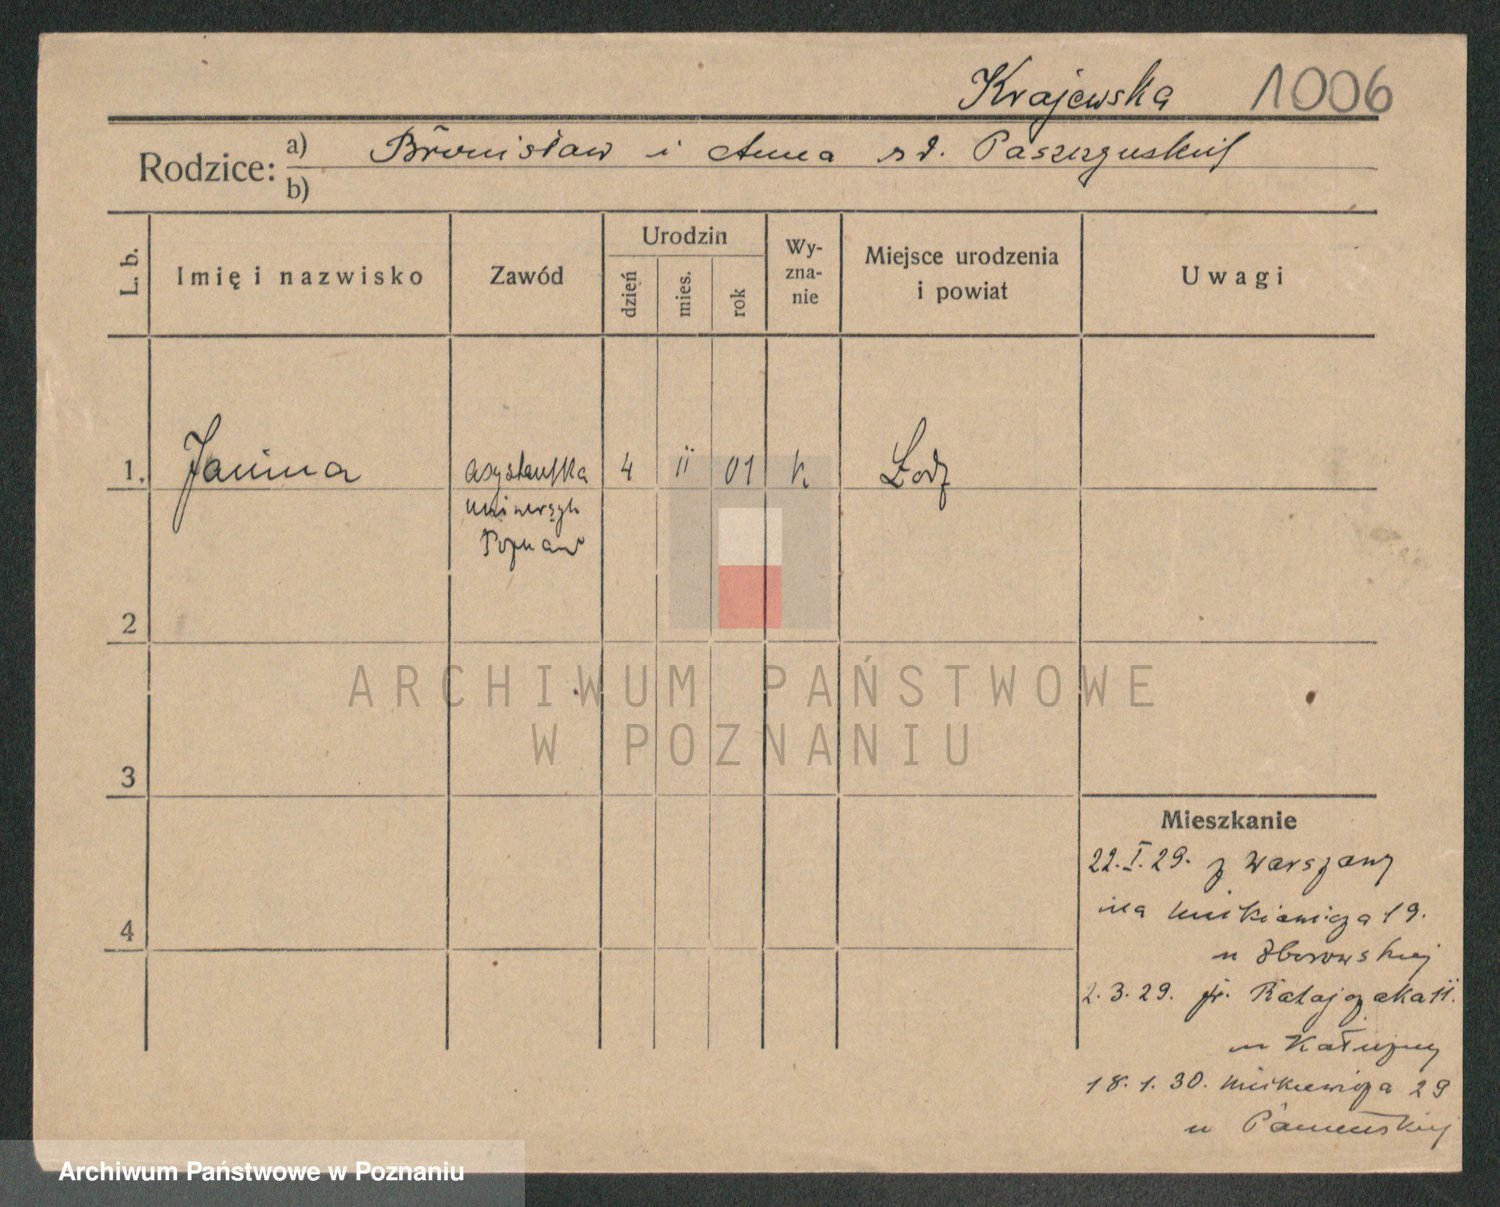 Krajewska 1006
Rodzice: a) Bronisław i Anna z d.
b)
L. b. Imię i nazwisko Zawód Urodzin dzień mies. rok Wy-zna-nie Miejsce urodzenia i powiat Uwagi
1. Janina asystentka 4 II 01 k Łodz
uniwersyt
Poznań
2
3
4
ARCHIWUM PAŃSTWOWE
W POZNANIU
Mieszkanie
22.I.29. z Warszawy
na Mickiewicza 19.
u Zborowskiej
2.3.29. Ratajczaka 11.
u Kałużny
18.1.30. Mickiewicza 29
u
Archiwum Państwowe w Poznaniu